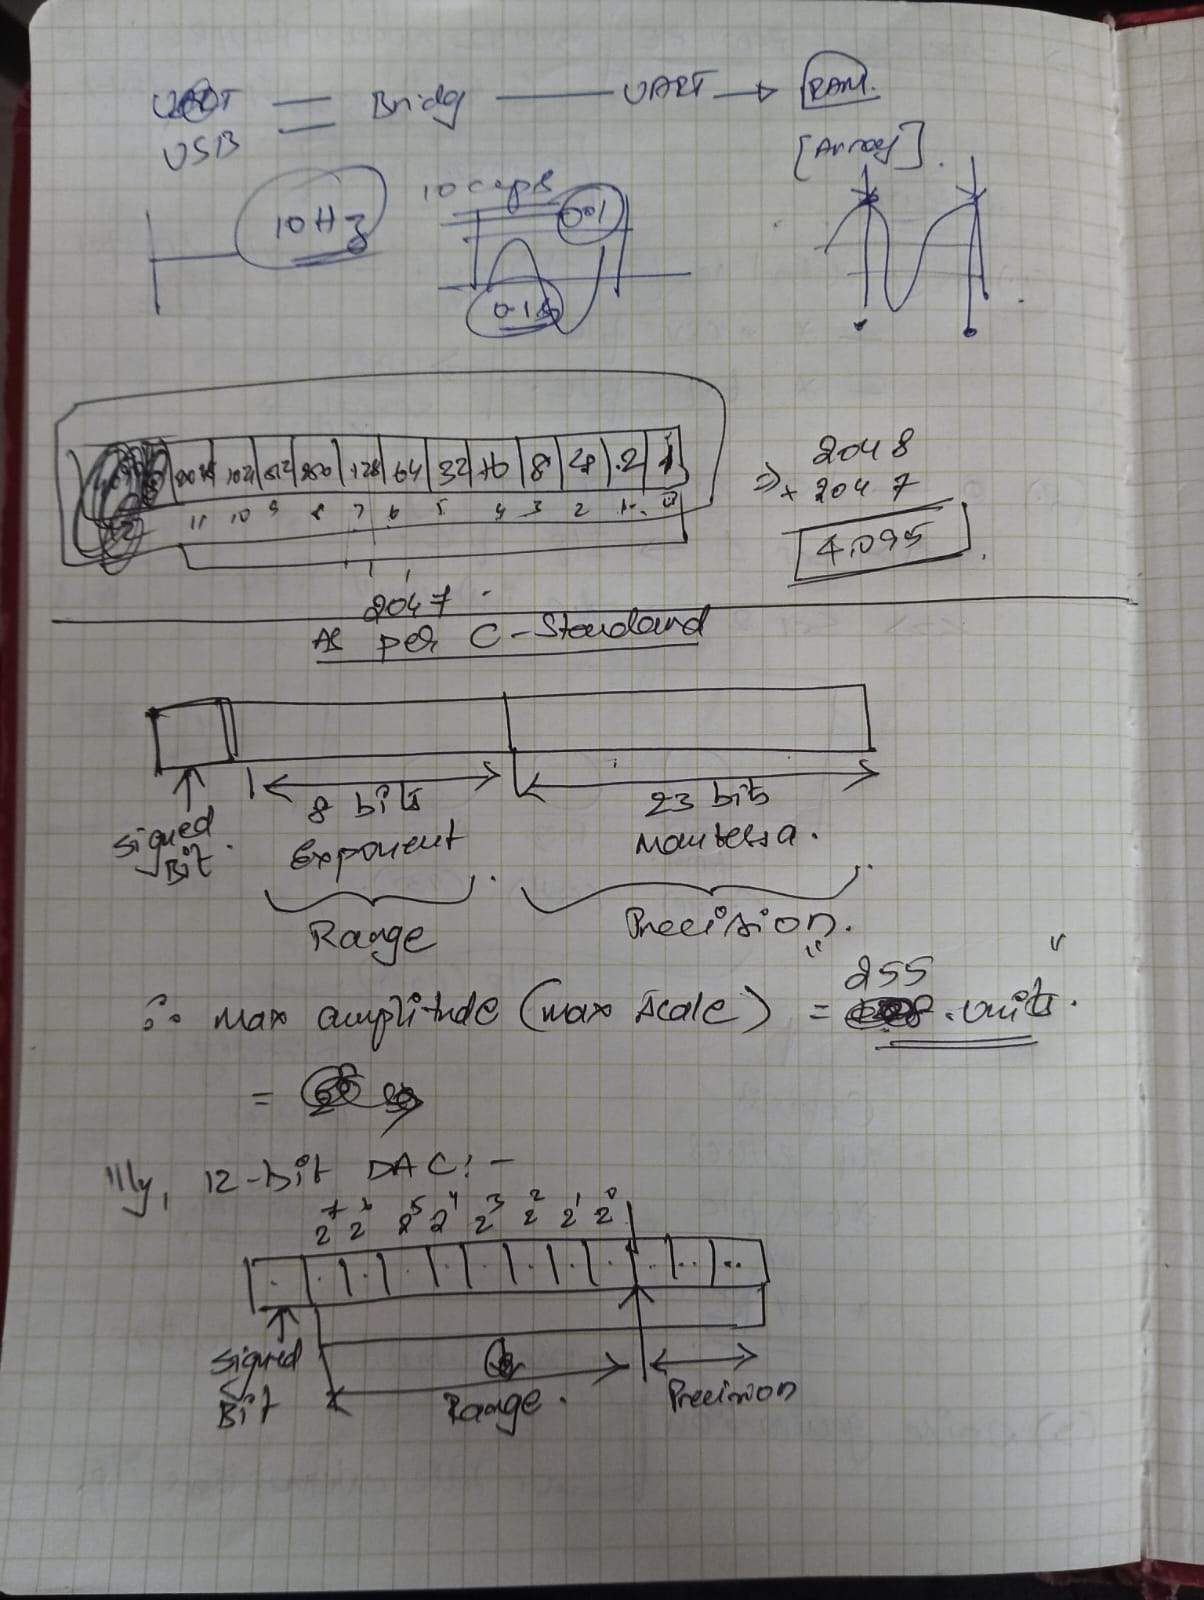 UART — Bridg — UART → RAM.
USB
[Array].
10Hz
10 caps
0.1
0.1s
2048 1024 512 256 128 64 32 16 8 4 2 1
11 10 9 8 7 6 5 4 3 2 1 0
2047
⇒ 2048
+ 2047
4095
As per C-Standard
Signed Bit.
8 bits
Exponent
Range
23 bits
Mantessa.
Precision.
∴ max amplitude (max scale) = 255 units.
=
111ly, 12-bit DAC:-
2⁷ 2⁶ 2⁵ 2⁴ 2³ 2² 2¹ 2⁰
Signed Bit
Range.
Precision